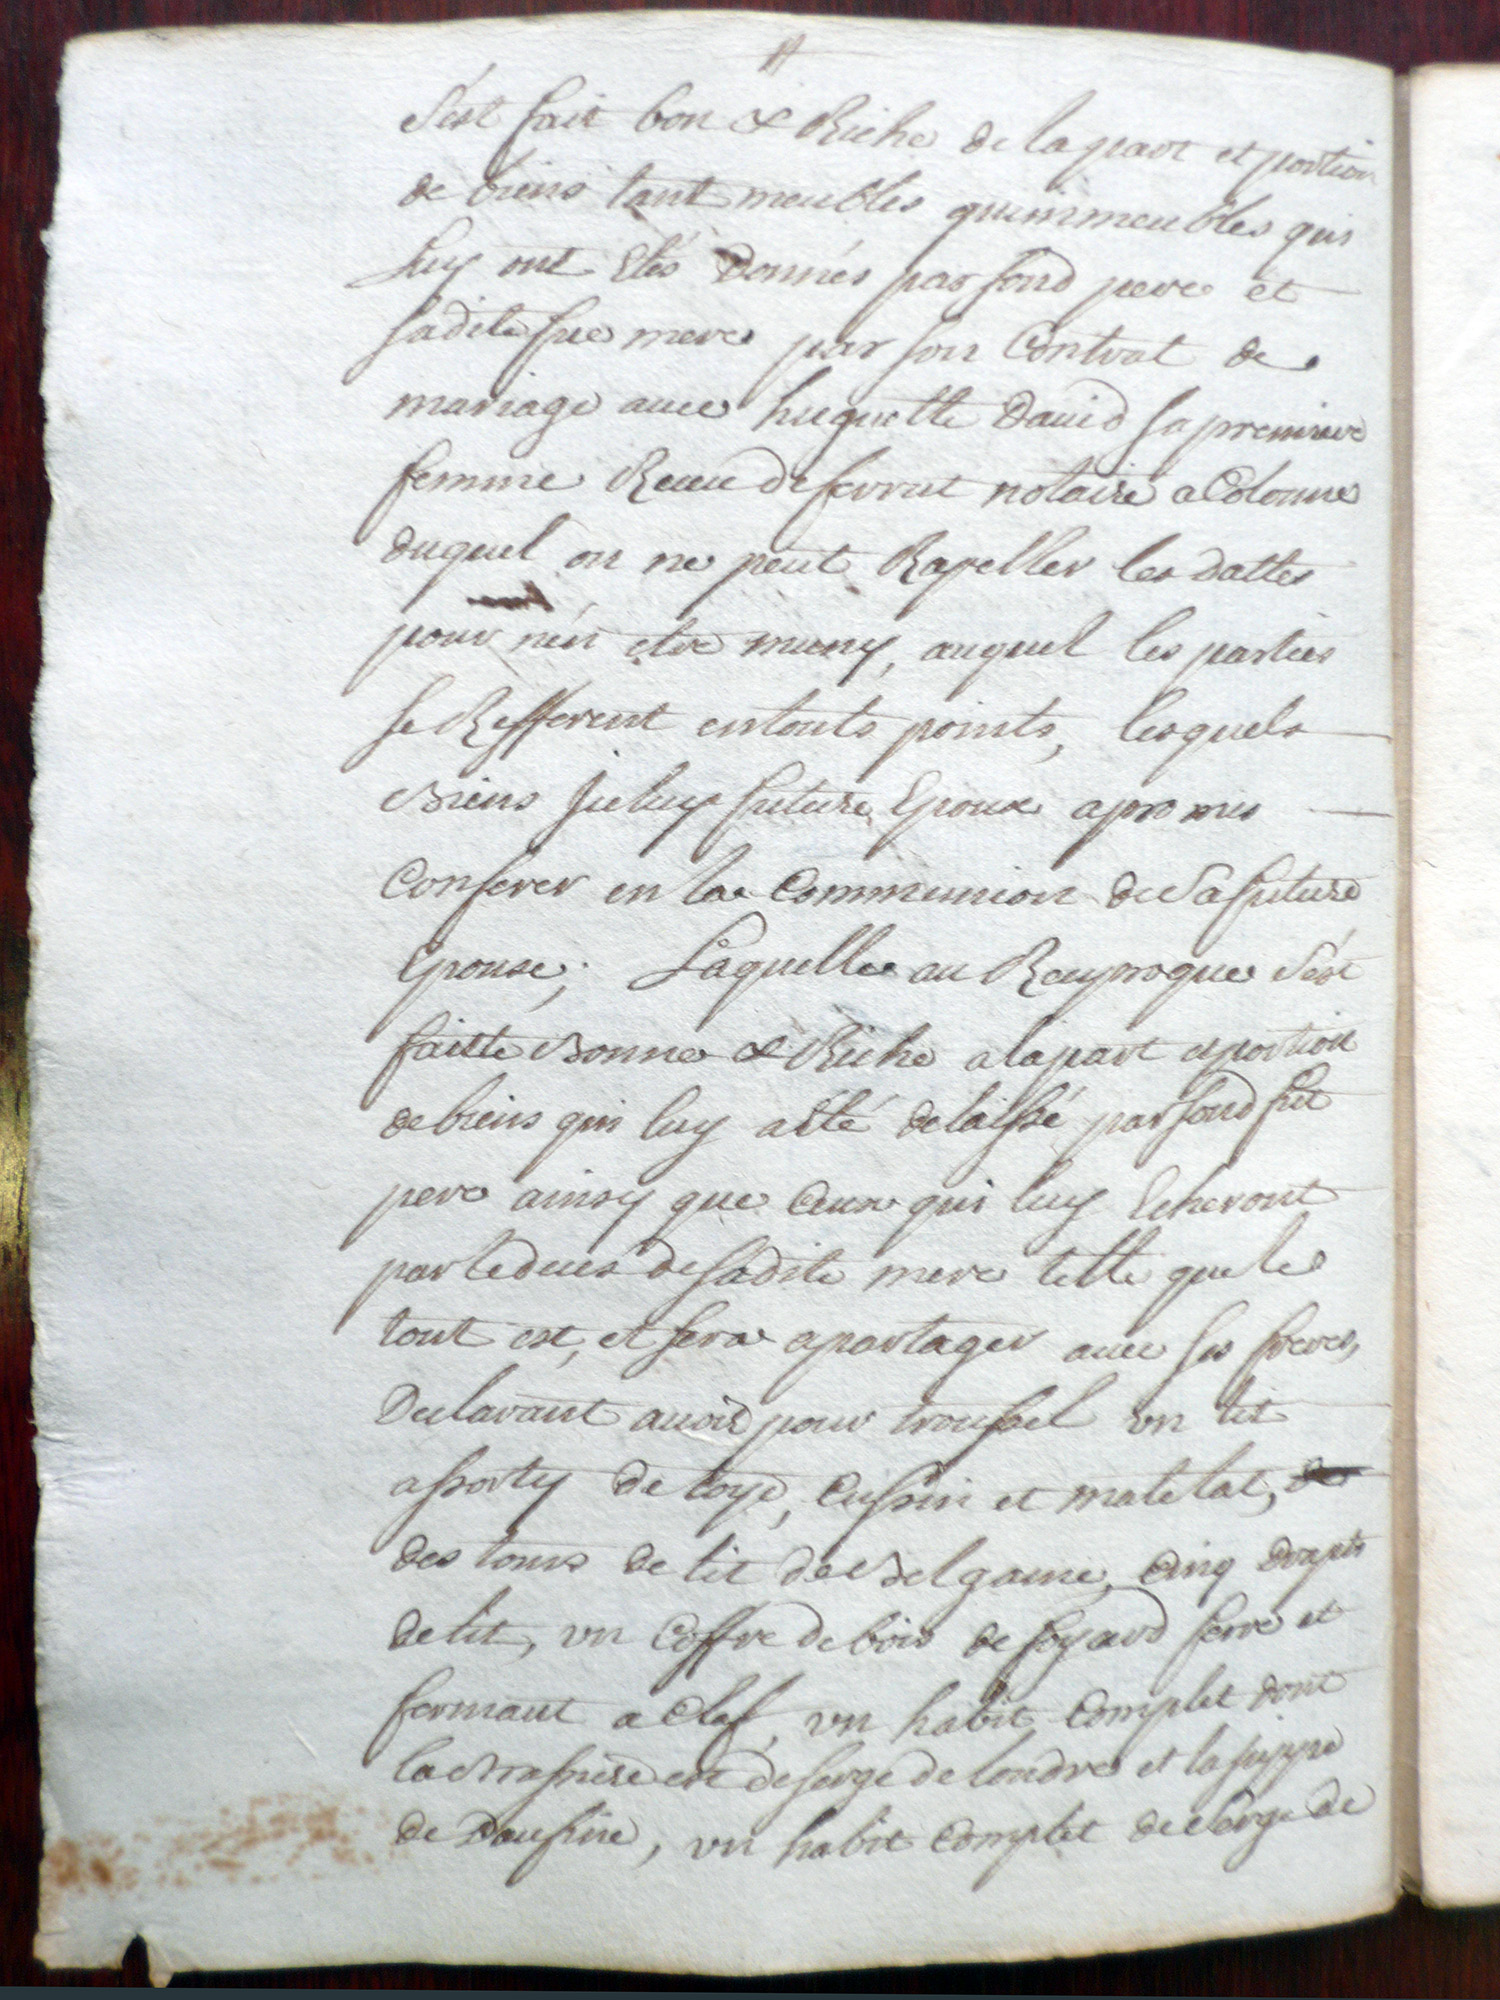 s'est fait bon & Riche de la part et portion
de biens tant meubles qu'immeubles qui
luy ont Etés Donnés par sond pere et
sadite fue mere par son Contrat de
mariage avec huguette David sa premiere
femme Receu de ferrut notaire a Colonne
duquel on ne peut Rapeller les dattes
pour n'en etre muny, auquel les parties
se Refferent en touts points, lesquels
Biens iceluy future Epoux a promis
Conferer en la Communion de Sa future
Epouse; Laquelle au Reciproque s'est
faitte Bonne & Riche a la part et portion
de biens qui luy a été delaissé par sond fut
pere ainsy que Ceux qui luy Echeront
par le deces de sadite mere telle que le
tout est, et sera a partager avec ses freres,
Declarant avoir pour troussel un lit
assorty de coye, Cussin et matelat,
des tours de lit de Belgame, Cinq Drapts
de lit, un Coffre de bois de foyard ferré et
fermant a Clef, un habit Complet dont
la Brassiere est de serge de londre et la juppe
de Daufine, un habit Complet de serge de